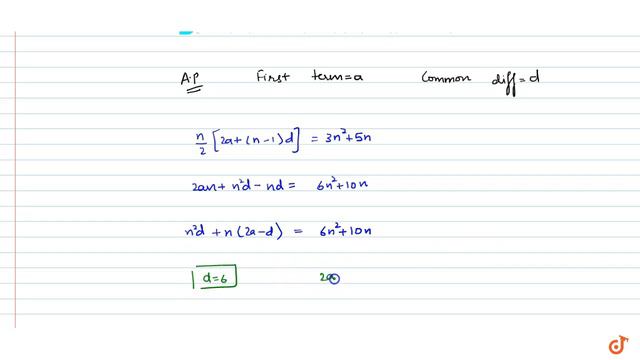 A.P First term = a Common diff = d
n/2 [2a+(n-1)d] = 3n²+5n
2an + n²d - nd = 6n²+10n
n²d + n(2a-d) = 6n²+10n
d=6 2a